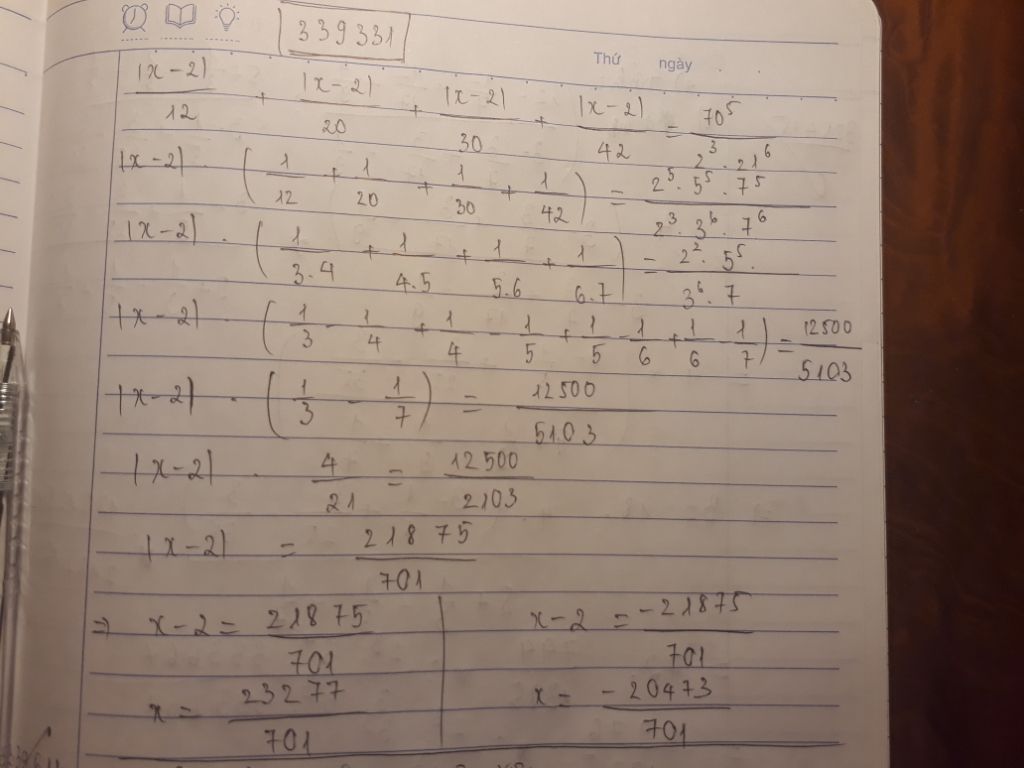 339331
Thứ ngày
|x-2|/12 + |x-2|/20 + |x-2|/30 + |x-2|/42 = 70⁵/(2³ · 21⁶)
|x-2| (1/12 + 1/20 + 1/30 + 1/42) = (2⁵ · 5⁵ · 7⁵)/(2³ · 3⁶ · 7⁶)
|x-2| · (1/(3.4) + 1/(4.5) + 1/(5.6) + 1/(6.7)) = (2² · 5⁵.)/(3⁶ · 7)
|x-2| · (1/3 - 1/4 + 1/4 - 1/5 + 1/5 - 1/6 + 1/6 - 1/7) = 12500/5103
|x-2| · (1/3 - 1/7) = 12500/5103
|x-2| · 4/21 = 12500/2103
|x-2| = 21875/701
=> x-2 = 21875/701 | x-2 = -21875/701
x = 23277/701 | x = -20473/701